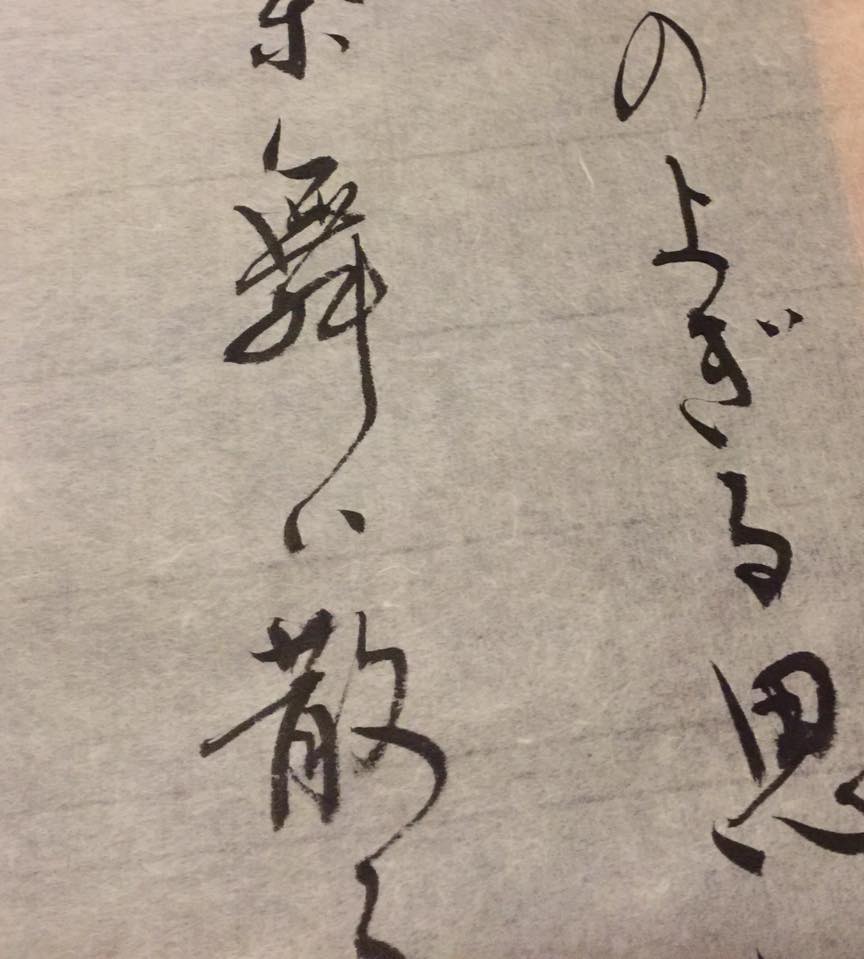 のよぎる思
舞い散る